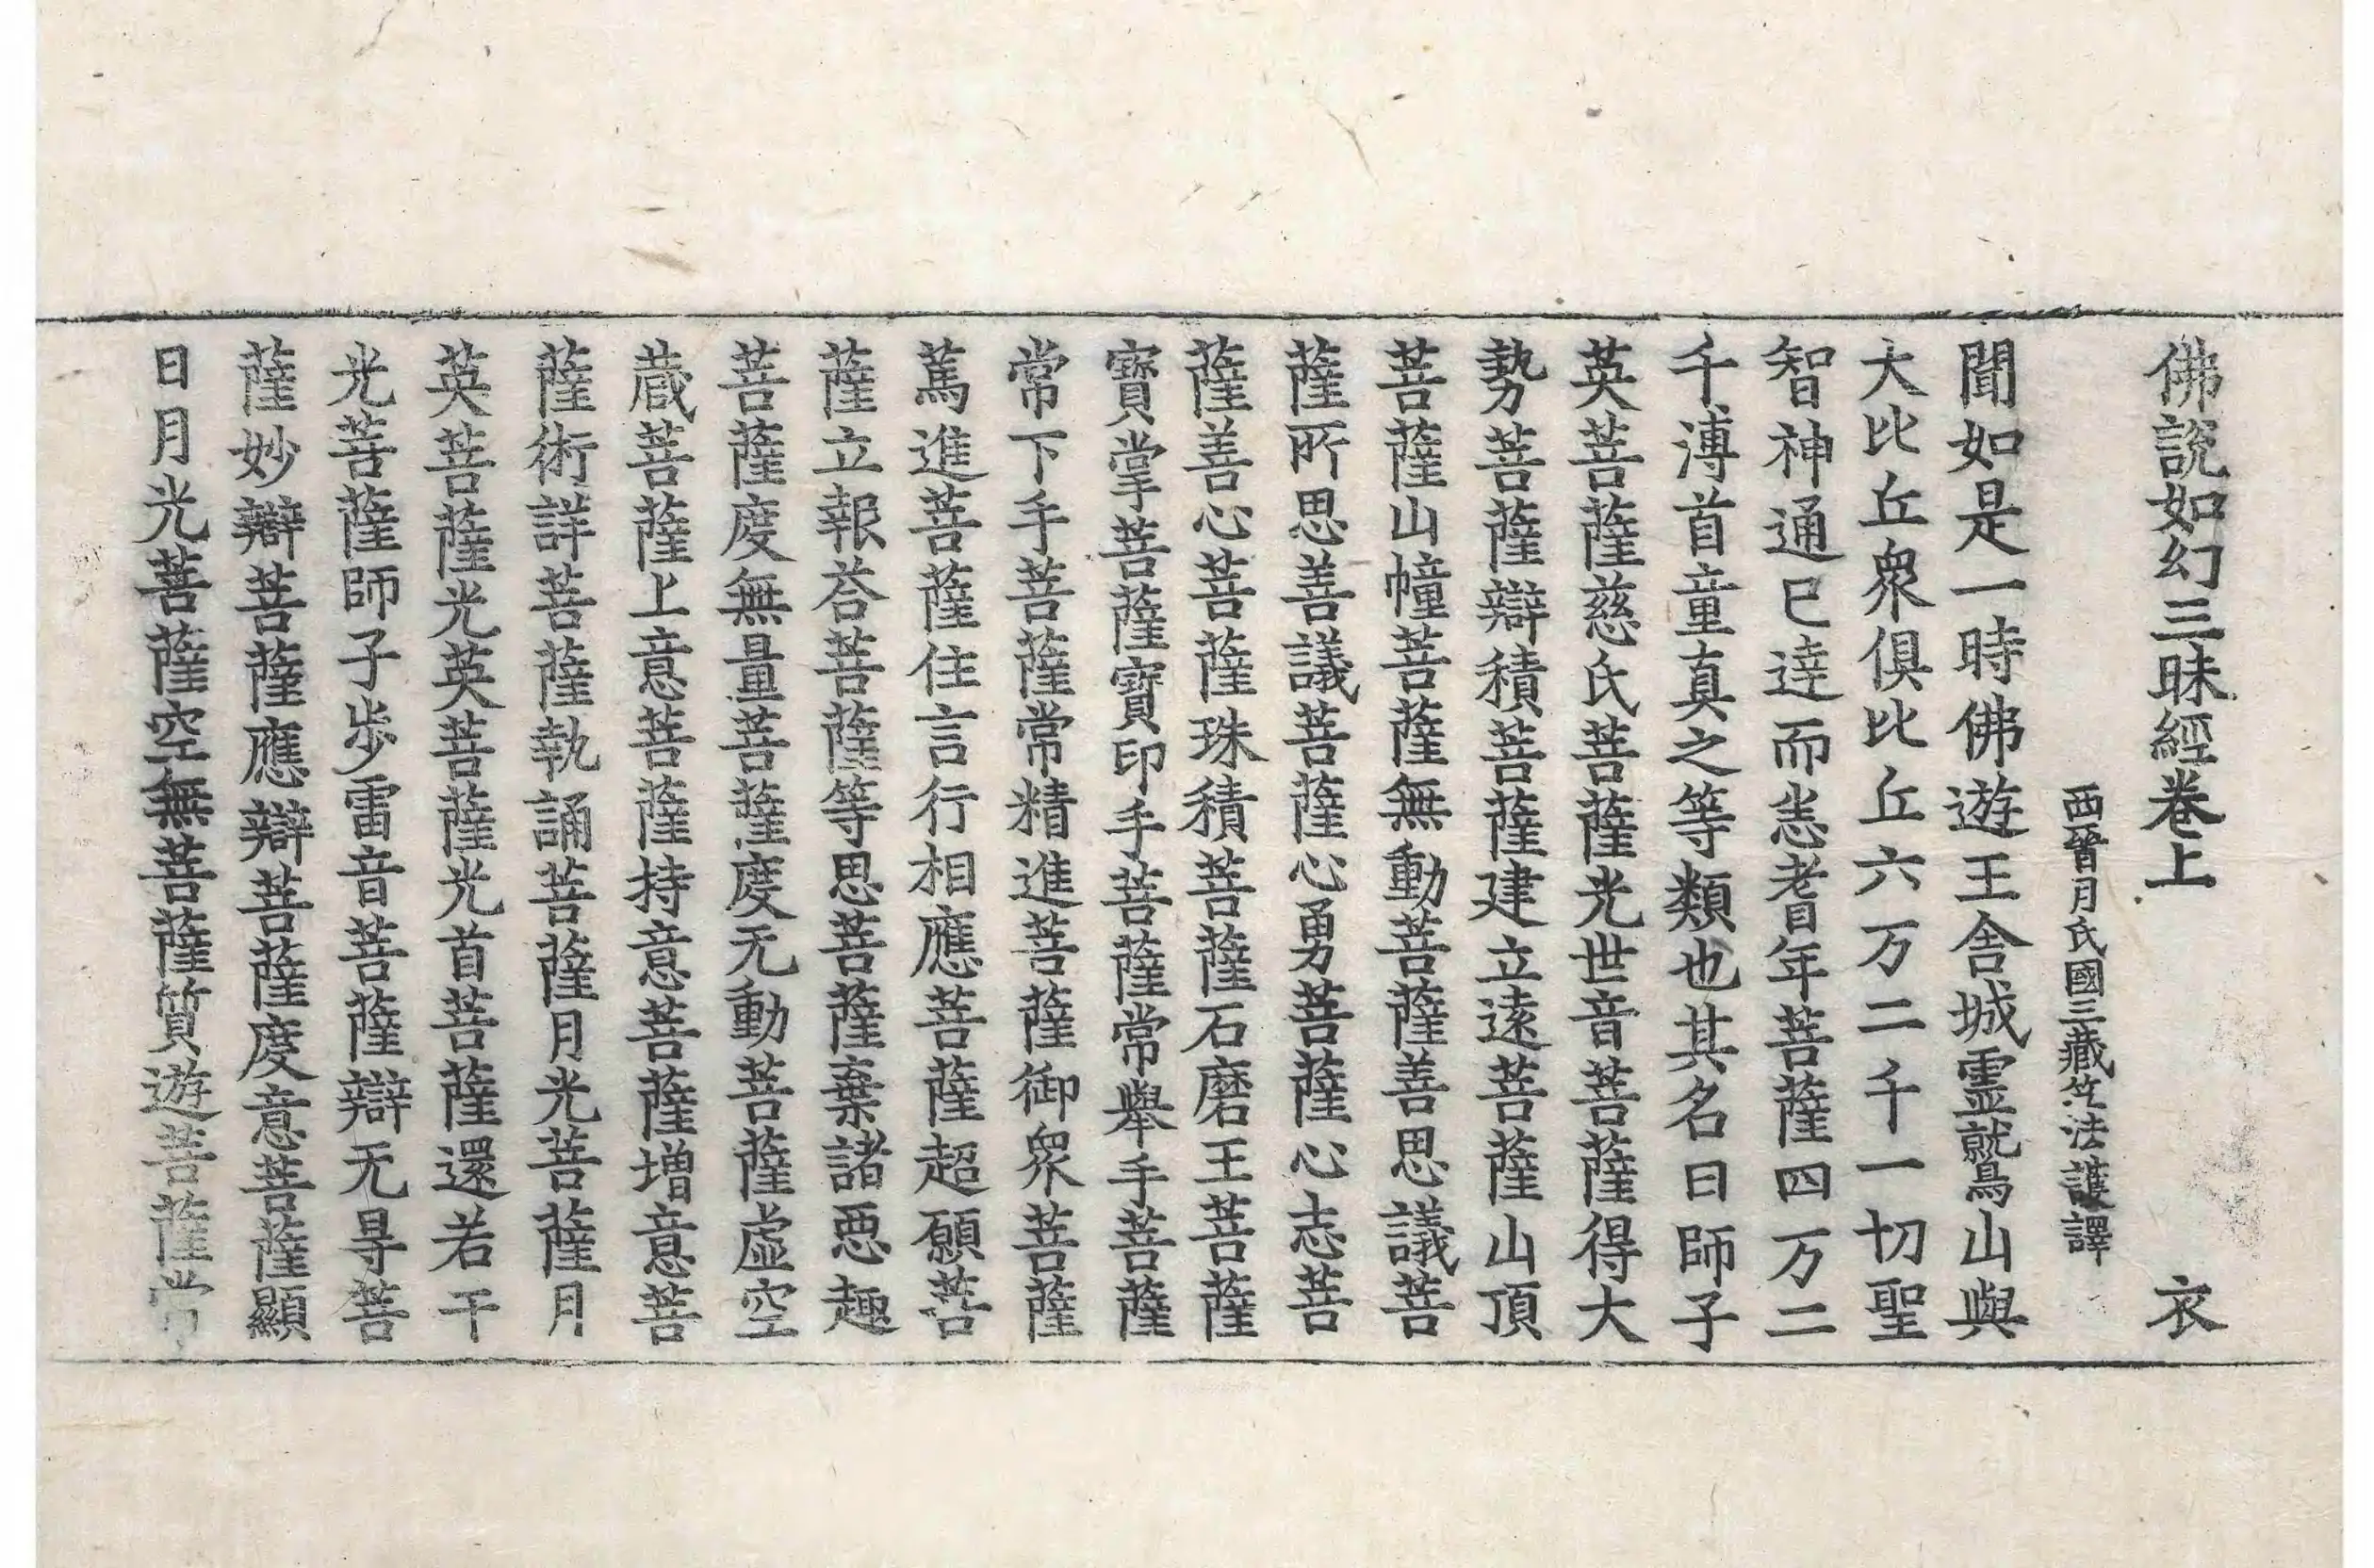 佛說如幻三昧經卷上 衣
西晉月氏國三藏竺法護譯
聞如是一時佛遊王舍城靈鷲山與
大比丘衆俱比丘六万二千一切聖
智神通已達而悉耆年菩薩四万二
千溥首童真之等類也其名曰師子
英菩薩慈氏菩薩光世音菩薩得大
勢菩薩辯積菩薩建立遠菩薩山頂
菩薩山幢菩薩無動菩薩善思議菩
薩所思善議菩薩心勇菩薩心志菩
薩善心菩薩珠積菩薩石磨王菩薩
寶掌菩薩寶印手菩薩常舉手菩薩
常下手菩薩常精進菩薩御衆菩薩
蔿進菩薩住言行相應菩薩超願菩
薩立報荅菩薩等思菩薩棄諸惡趣
菩薩度無量菩薩度无動菩薩虛空
蔵菩薩上意菩薩持意菩薩增意菩
薩術詳菩薩執誦菩薩月光菩薩月
英菩薩光英菩薩光首菩薩還若干
光菩薩師子步雷音菩薩辯无㝵菩
薩妙辯菩薩應辯菩薩度意菩薩顯
日月光菩薩空無菩薩質遊菩薩常